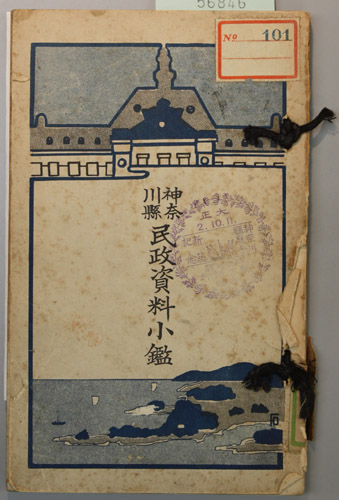 56846
No 101
神奈
川縣
民政資料小鑑
大正
2.10.11